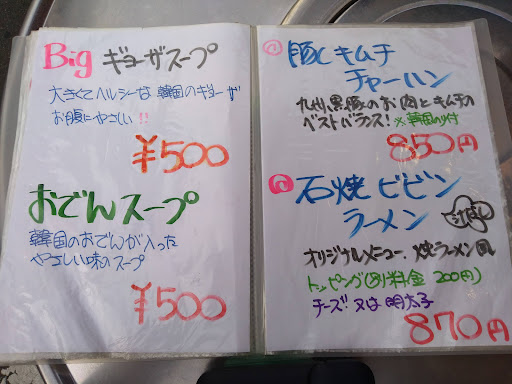 Big ギョーザスープ
大きくてヘルシーな 韓国のギョーザ
お腹にやさしい!!
¥500
おでんスープ
韓国のおでんが入った
やさしい味のスープ
¥500
豚とキムチ
チャーハン
九州、黒豚のお肉とキムチの
ベストバランス! ※韓国のり付
850円
石焼ビビン
ラーメン
汁なし
オリジナルメニュー、焼ラーメン風
トッピング(別料金 200円)
チーズ又は明太子
870円